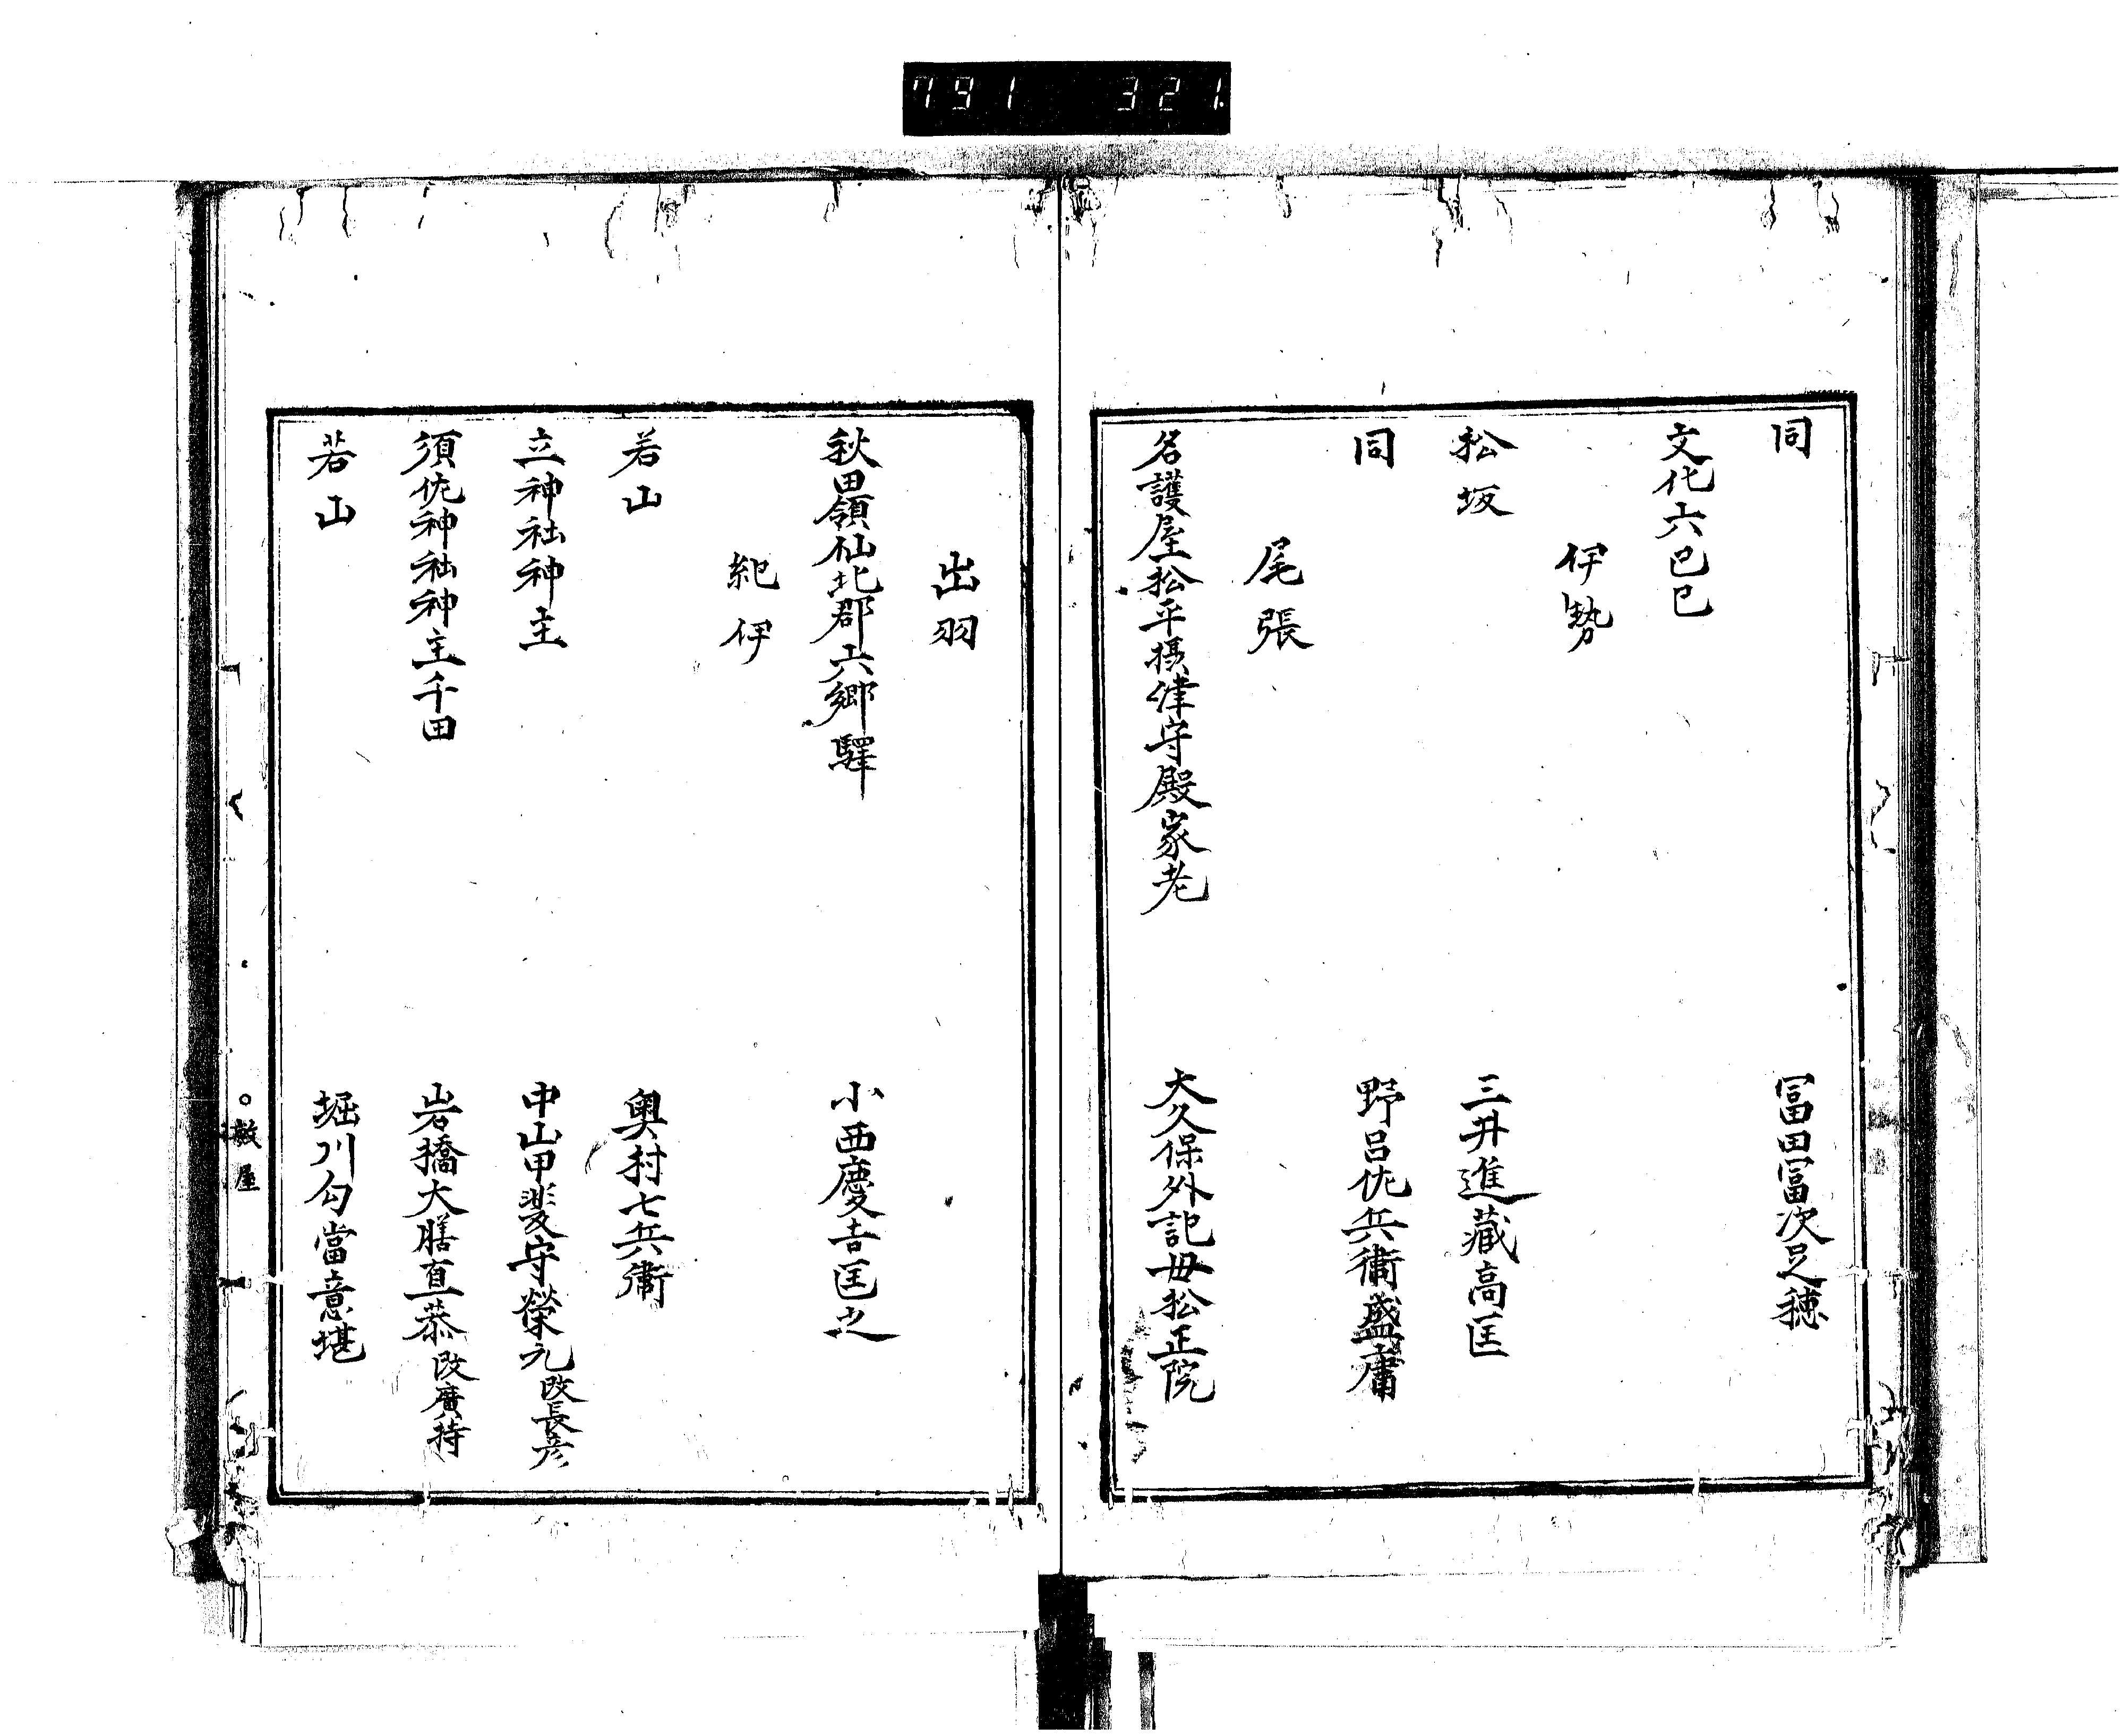 791 321
同 冨田冨次足穂
文化六己巳
伊勢
松坂 三井進藏高匡
同 野呂佐兵衞盛庸
尾張
名護屋松平摂津守殿家老 大久保外記母松正院
出羽
秋田領仙北郡六郷驛 小西慶吉匡之
紀伊
若山 奥村七兵衞
立神社神主 中山甲斐守榮元改長彦
須佐神社神主千田 岩橋大膳直恭改廣持
若山 堀川勾當意堪